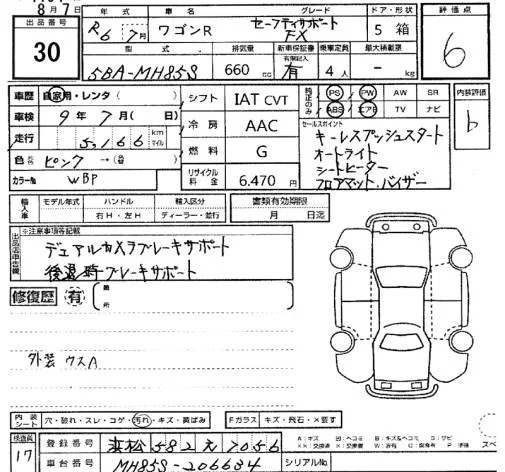 8月7日
出品番号 30
年式 R6年 7月
車名 ワゴンR
グレード セーフティサポート FX
ドア・形状 5 箱
評価点 6
型式 5BA-MH85S
排気量 660 cc
新車保証書 有
乗車定員 4人
最大積載量 - kg
車歴 自家用・レンタ( )
シフト IAT CVT
純正のみ PS PW AW SR
ABS エアB TV ナビ
内装評価 b
車検 9年7月( 日)
冷房 AAC
セールスポイント
キーレスプッシュスタート
オートライト
シートヒーター
フロアマット・バイザー
走行 5,166 km マイル
燃料 G
色 ピンク→( )
カラーNo WBP
リサイクル料金 6.470円
輸入車 モデル年式 ハンドル 輸入区分 書類有効期限
右H・左H ディーラー・並行 月 日迄
※注意事項等記載
デュアルカメラブレーキサポート
後退時ブレーキサポート
修復歴 有 箇所
外装 ウスA
内装シート 穴・破れ・スレ・コゲ・汚れ・キズ・黄ばみ
Fガラス キズ・飛石・X要す
検査員 17
登録番号 浜松 582 え 7056
車台番号 MH85S-206634
シリアルNo.